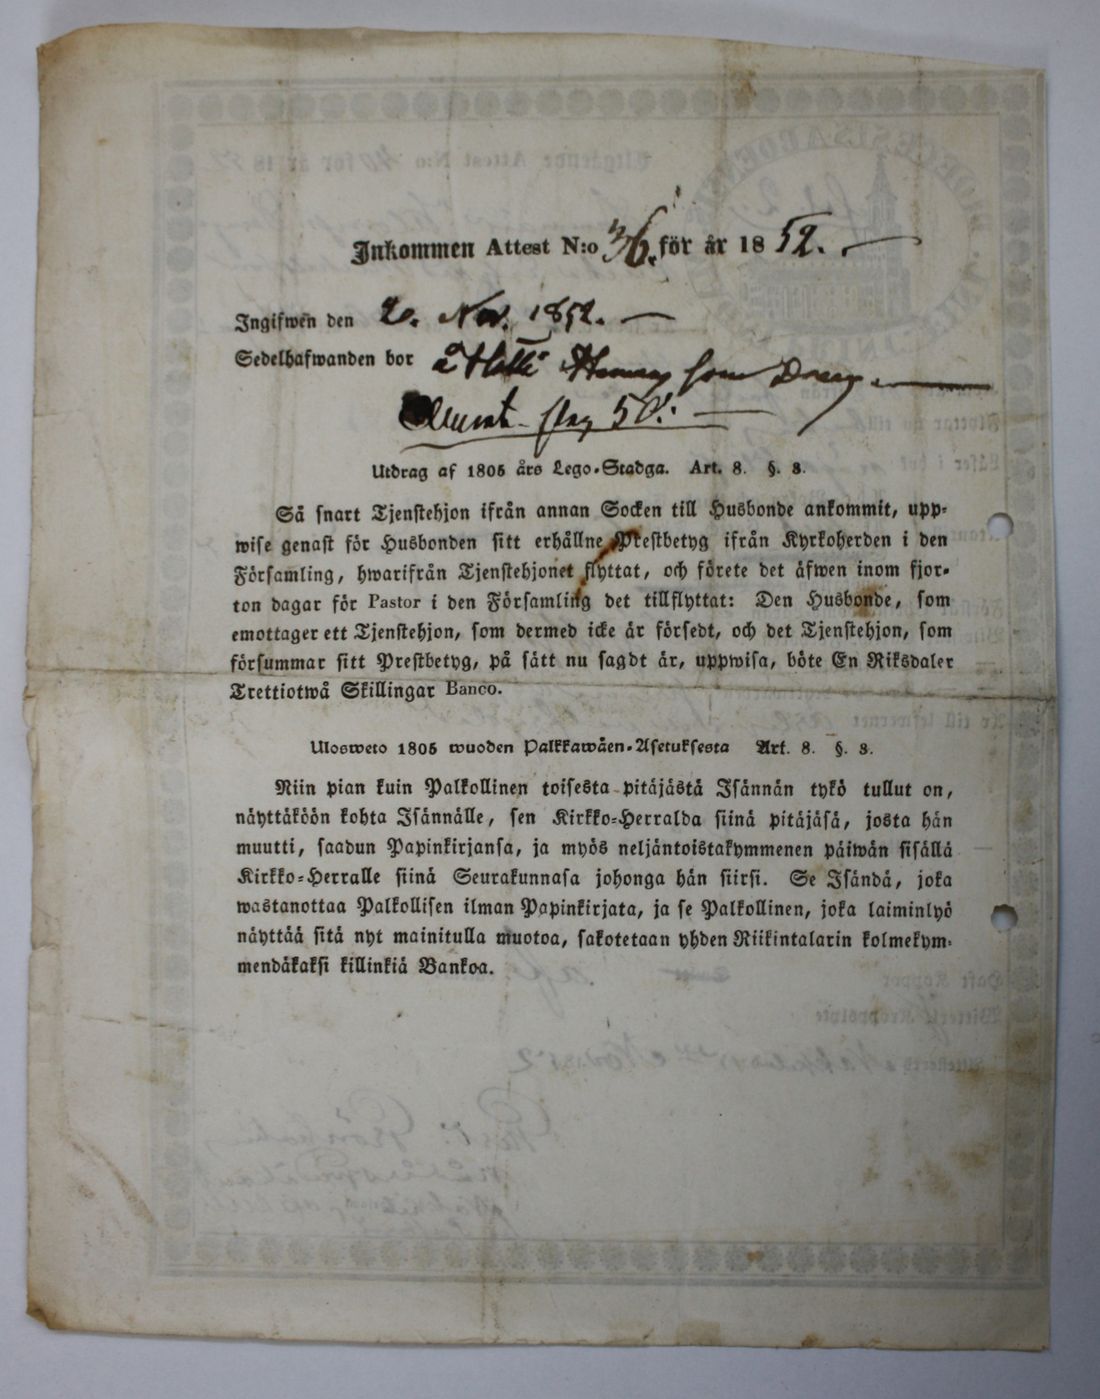 Inkommen Attest N:o 36. för år 1852.
Ingifwen den 20. Nov. 1852.
Sedelhafwanden bor å som Dräng
50.
Utdrag af 1805 års Lego-Stadga. Art. 8. §. 8.
Så snart Tjenstehjon ifrån annan Socken till Husbonde ankommit, upp-
wise genast för Husbonden sitt erhållne Prestbetyg ifrån Kyrkoherden i den
Församling, hwarifrån Tjenstehjonet flyttat, och förete det äfwen inom fjor-
ton dagar för Pastor i den Församling det tillflyttat: Den Husbonde, som
emottager ett Tjenstehjon, som dermed icke är försedt, och det Tjenstehjon, som
försummar sitt Prestbetyg, på sätt nu sagdt är, uppwisa, böte En Riksdaler
Trettiotwå Skillingar Banco.
Ulosweto 1805 wuoden Palkkawäen-Asetuksesta Art. 8. §. 8.
Niin pian kuin Palkollinen toisesta pitäjästä Isännän tykö tullut on,
näyttäköön kohta Isännälle, sen Kirkko-Herralda siinä pitäjäsä, josta hän
muutti, saadun Papinkirjansa, ja myös neljäntoistakymmenen päiwän sisällä
Kirkko-Herralle siinä Seurakunnasa johonga hän siirsi. Se Isändä, joka
wastanottaa Palkollisen ilman Papinkirjata, ja se Palkollinen, joka laiminlyö
näyttää sitä nyt mainitulla muotoa, sakotetaan yhden Riikintalarin kolmekym-
mendäkaksi killinkiä Bankoa.